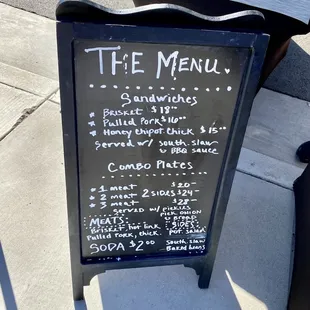 THE MENU
Sandwiches
* Brisket $18
* Pulled Pork $16
* Honey chipot. thick $15
Served w/ south. slaw
& BBQ sauce
Combo Plates
* 1 meat $20
* 2 meat 2 SIDES $24
* 3 meat $28
served w/ pickles
pick onion
& bread
MEATS:
SIDES:
Brisket, hot link
Pulled Pork, thick.
pot. salad
South. slaw
Baked beans
SODA $2.00